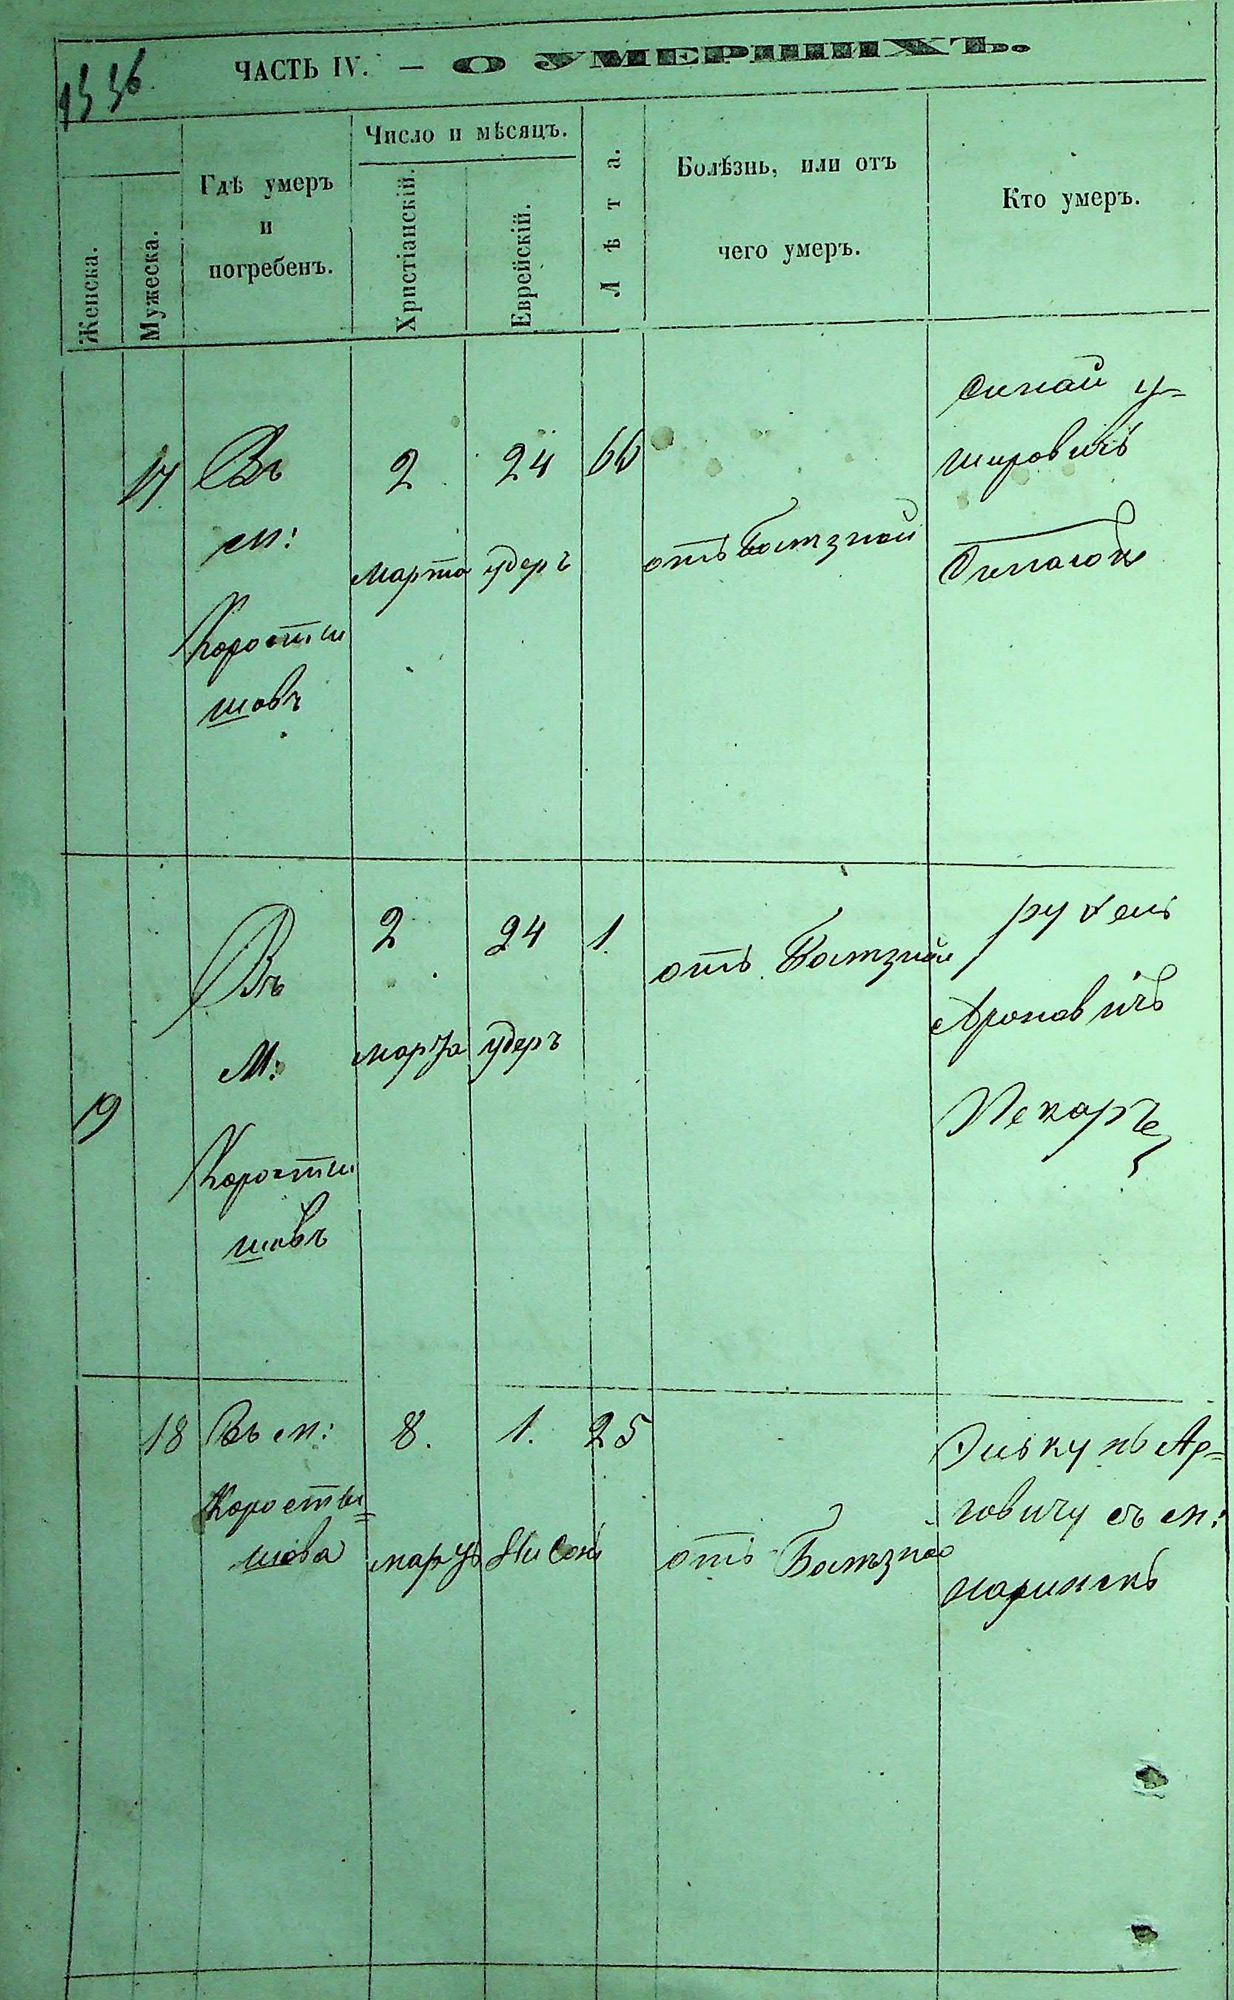 1336
ЧАСТЬ IV. — О УМЕРШИХЪ.
Женска.
Мужеска.
Гдѣ умеръ
и
погребенъ.
Число и мѣсяцъ.
Христіанскій.
Еврейскій.
Лѣта.
Болѣзнь, или отъ
чего умеръ.
Кто умеръ.
17
Въ
м:
Корости
шовъ
2
марта
24
удеръ
66
отъ
Синай
шировичъ
19
Въ
м:
Корости
шовъ
2
марта
24
удеръ
1
отъ
рувень
Ароновичъ
Пекаръ
18
Въ м:
Коросты=
шова
8.
марта
1.
Нисонъ
25
отъ
Ар=
говичу съ м: